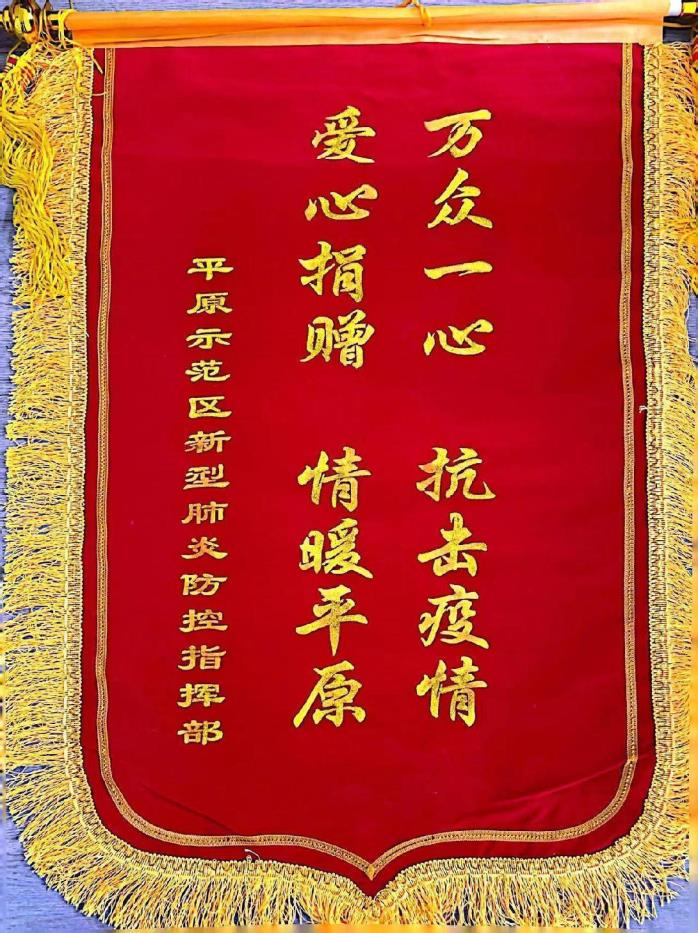 万众一心 抗击疫情
爱心捐赠 情暖平原
平原示范区新型肺炎防控指挥部